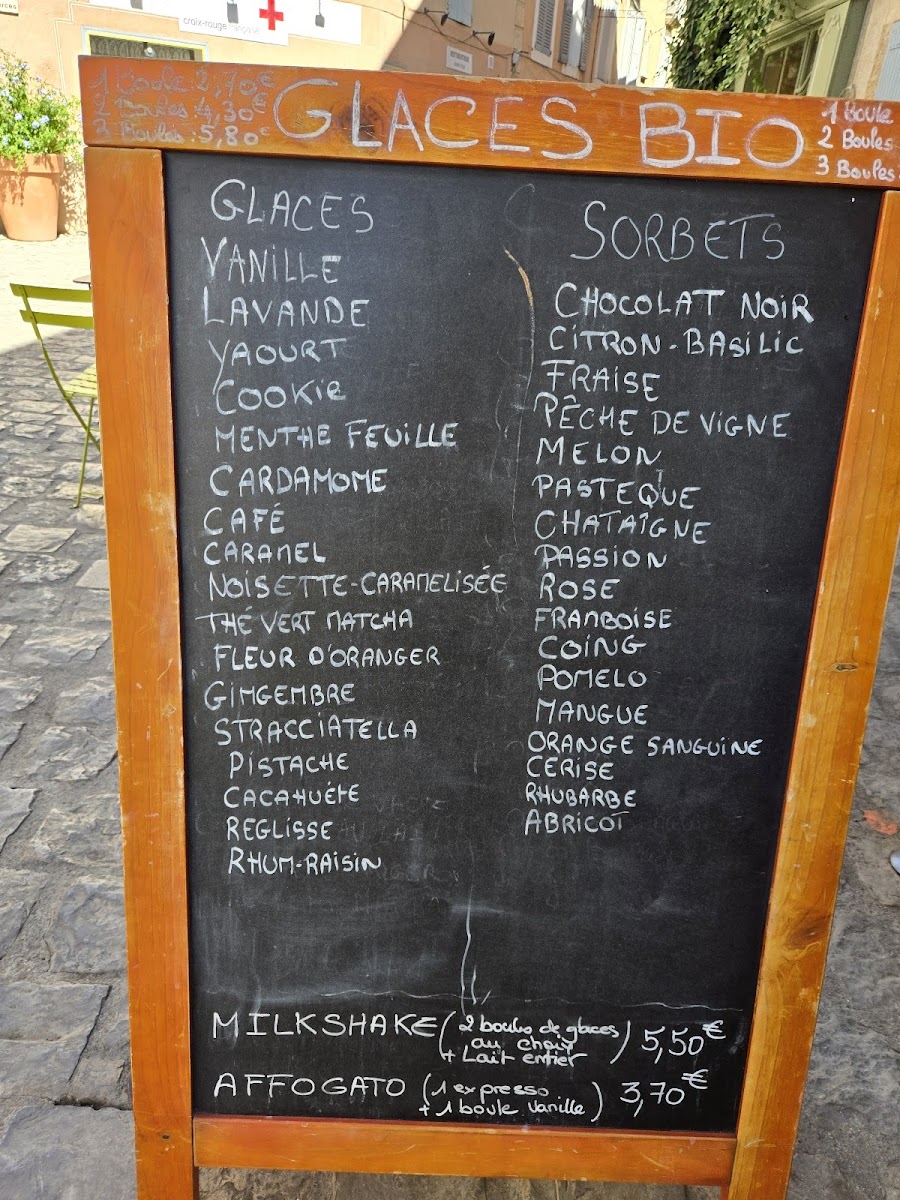 croix-rouge française
1 Boule 2,70€
2 Boules: 4,30€
3 Boules: 5,80€
GLACES BIO
1 Boule
2 Boules
3 Boules
GLACES
VANILLE
LAVANDE
YAOURT
COOKIE
MENTHE FEUILLE
CARDAMOME
CAFÉ
CARAMEL
NOISETTE-CARAMELISÉE
THÉ VERT MATCHA
FLEUR D'ORANGER
GIMGEMBRE
STRACCIATELLA
PISTACHE
CACAHUÉTE
REGLISSE
RHUM-RAISIN
SORBETS
CHOCOLAT NOIR
CITRON-BASILIC
FRAISE
PÊCHE DE VIGNE
MELON
PASTEQUE
CHATAÎGNE
PASSION
ROSE
FRAMBOISE
COING
POMELO
MANGUE
ORANGE SANGUINE
CERISE
RHUBARBE
ABRICOT
MILKSHAKE (2 boules de glaces
au choix
+ Lait entier) 5,50€
AFFOGATO (1 expresso
+ 1 boule vanille) 3,70€